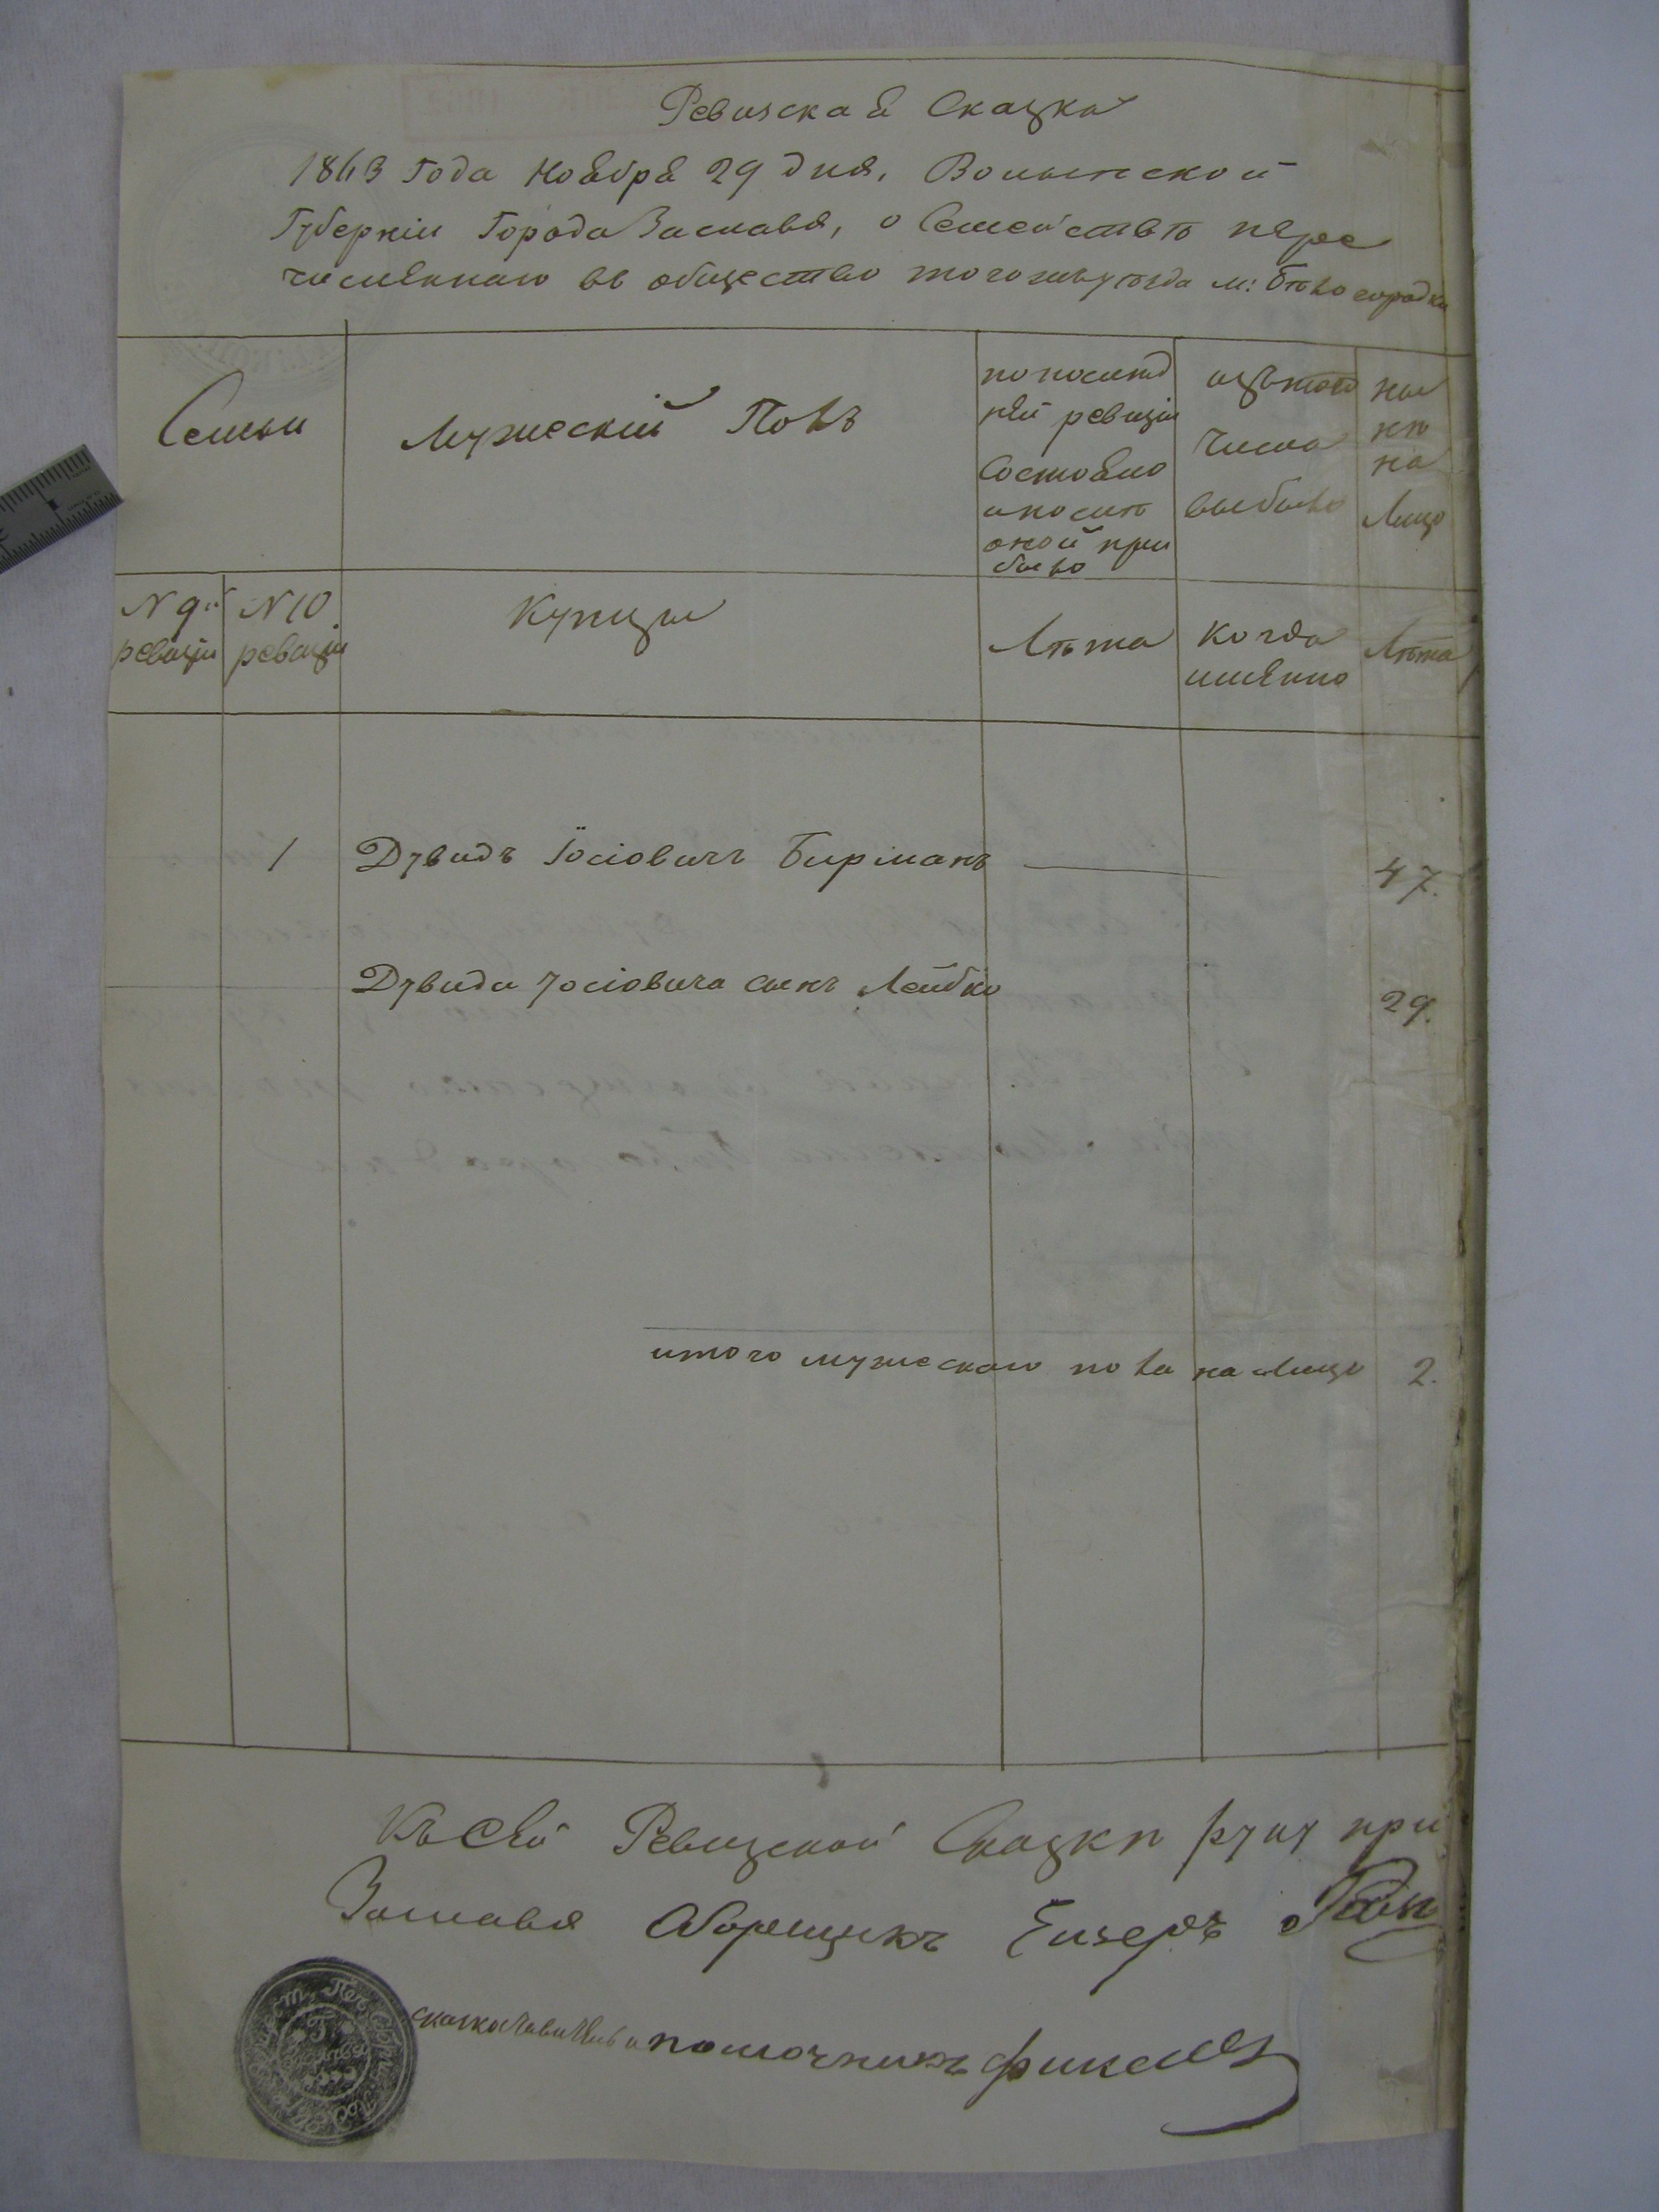 Ревизская Сказка
1863 Года Ноября 29 дня, Волынской
Губерніи Города Заславя, о Семействѣ пере
численнаго въ общество того жъ уѣзда м: Бѣлогородки
Семьи
Мужескій Полъ
по послѣд
ней ревизіи
Состояло
и послѣ
оной при
было
изъ того
Числа
выбыло
ны
нѣ
на
Лицо
N 9й
ревизіи
N 10
ревизіи
Купцы
Лѣта
Когда
именно
Лѣта
1 Дувидъ Іосіовичъ Бирманъ 47.
Дувида Іосіовича сынъ Лейбко 29.
итого мужескаго пола на Лицо 2.
Къ сей Ревизской Сказкѣ руку при
Заславя Сборщикъ
помочникъ